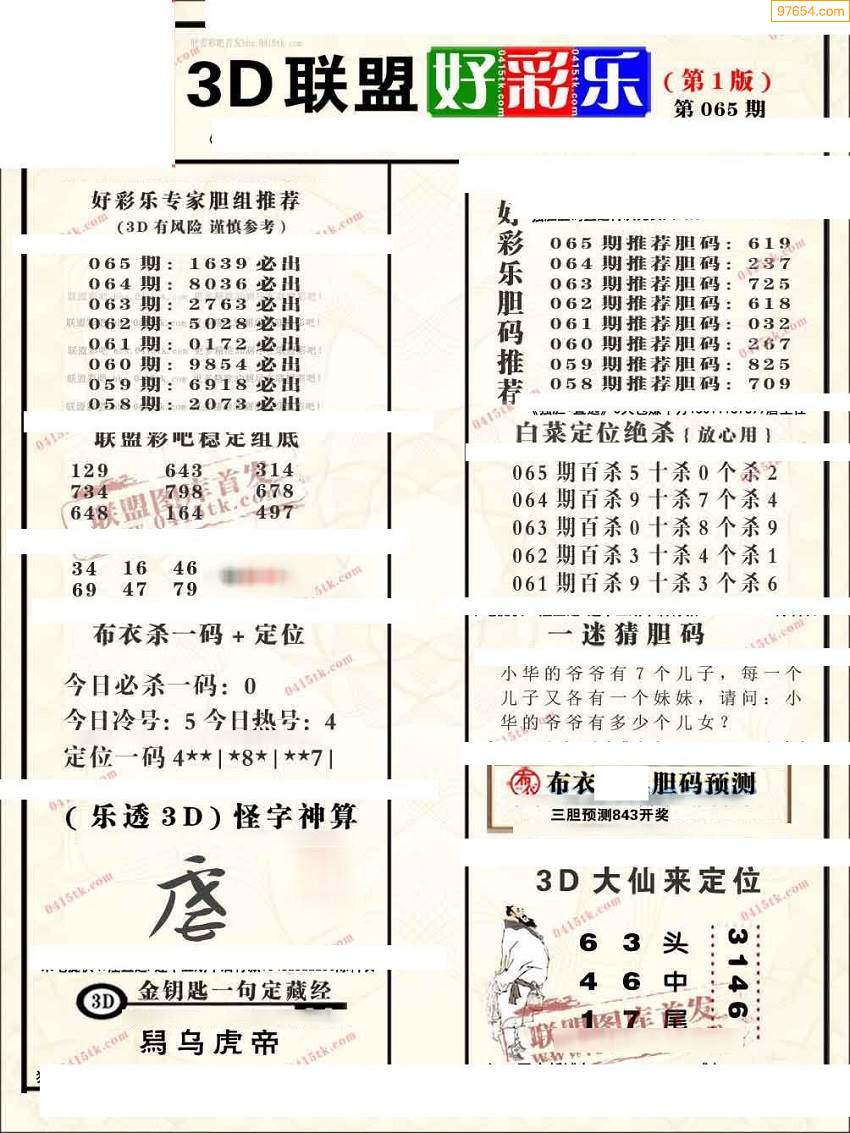 97654.com
3D联盟好彩乐
(第1版)
第065期
好彩乐专家胆组推荐
(3D有风险 谨慎参考)
065期:1639必出
064期:8036必出
063期:2763必出
062期:5028必出
061期:0172必出
060期:9854必出
059期:6918必出
058期:2073必出
联盟彩吧稳定组底
129 643 314
734 798 678
648 164 497
34 16 46
69 47 79
布衣杀一码+定位
今日必杀一码:0
今日冷号:5今日热号:4
定位一码4**|*8*|**7|
(乐透3D)怪字神算
3D 金钥匙一句定藏经
乌虎帝
好彩乐胆码推荐
065期推荐胆码:619
064期推荐胆码:237
063期推荐胆码:725
062期推荐胆码:618
061期推荐胆码:032
060期推荐胆码:267
059期推荐胆码:825
058期推荐胆码:709
白菜定位绝杀{放心用}
065期百杀5十杀0个杀2
064期百杀9十杀7个杀4
063期百杀0十杀8个杀9
062期百杀3十杀4个杀1
061期百杀9十杀3个杀6
一迷猜胆码
小华的爷爷有7个儿子,每一个
儿子又各有一个妹妹,请问:小
华的爷爷有多少个儿女?
布衣 胆码预测
三胆预测843开奖
3D大仙来定位
6 3头
4 6中
1 7尾
3146
联盟图库首发
www.0415tk.com
0415tk.com